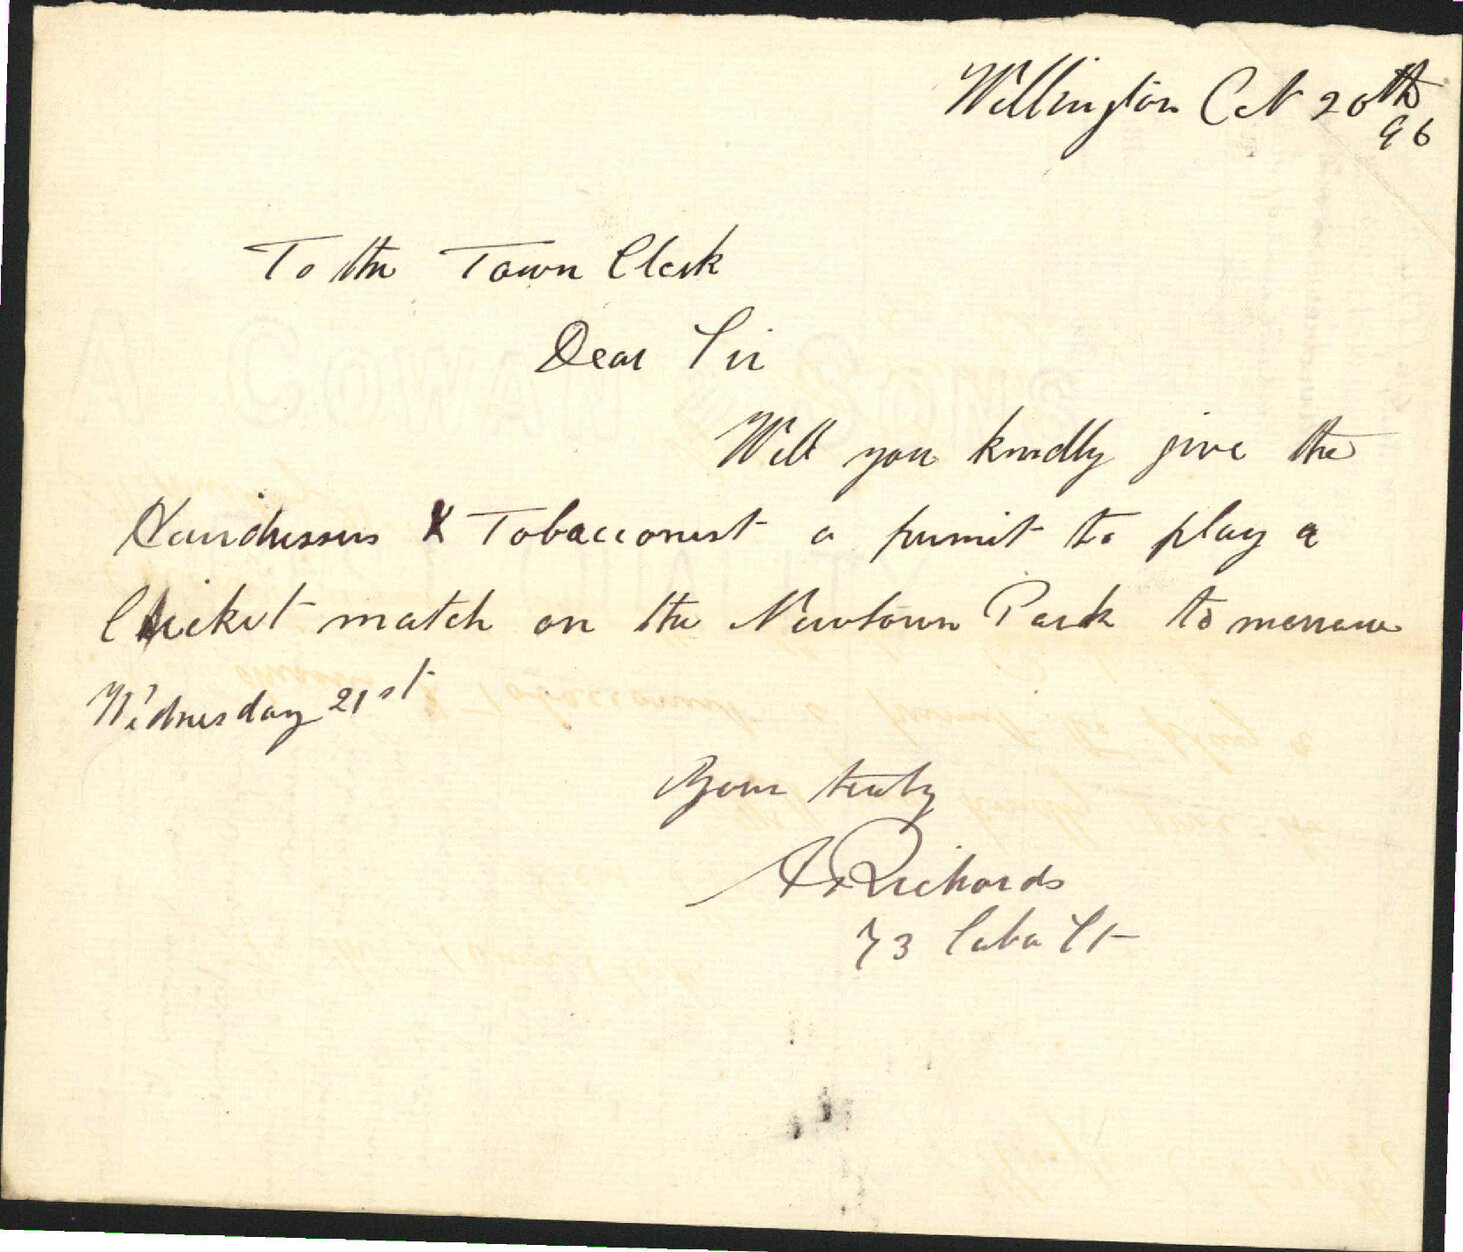 Wellington Oct 20th
96
To the Town Clerk
Dear Sir
Will you kindly give the
Hairdressers & Tobacconist a permit to play a
Cricket match on the Newtown Park to morrow
Wednesday 21st
Yours truly
A Richards
73 Cuba St
A COWAN & SONS